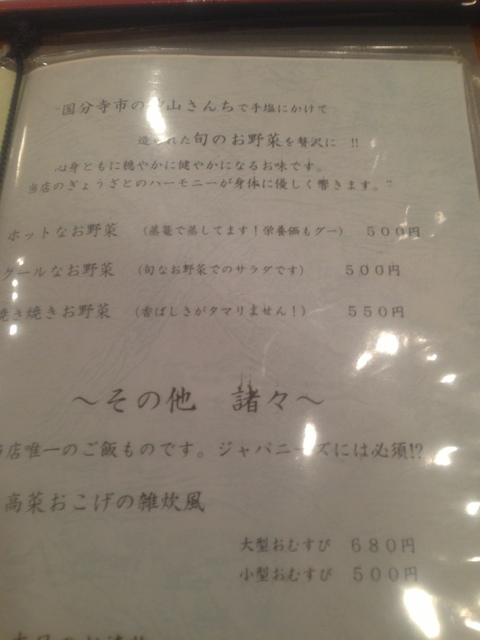 "国分寺市の 山さんちで手塩にかけて
造られた旬のお野菜を贅沢に !!
心身ともに穏やかに健やかになるお味です。
当店のぎょうざとのハーモニーが身体に優しく響きます。"
ホットなお野菜 (蒸篭で蒸してます!栄養価もグー) 500円
クールなお野菜 (旬なお野菜でのサラダです) 500円
焼き焼きお野菜 (香ばしさがタマリません!) 550円
~その他 諸々~
当店唯一のご飯ものです。ジャパニーズには必須!?
高菜おこげの雑炊風
大型おむすび 680円
小型おむすび 500円